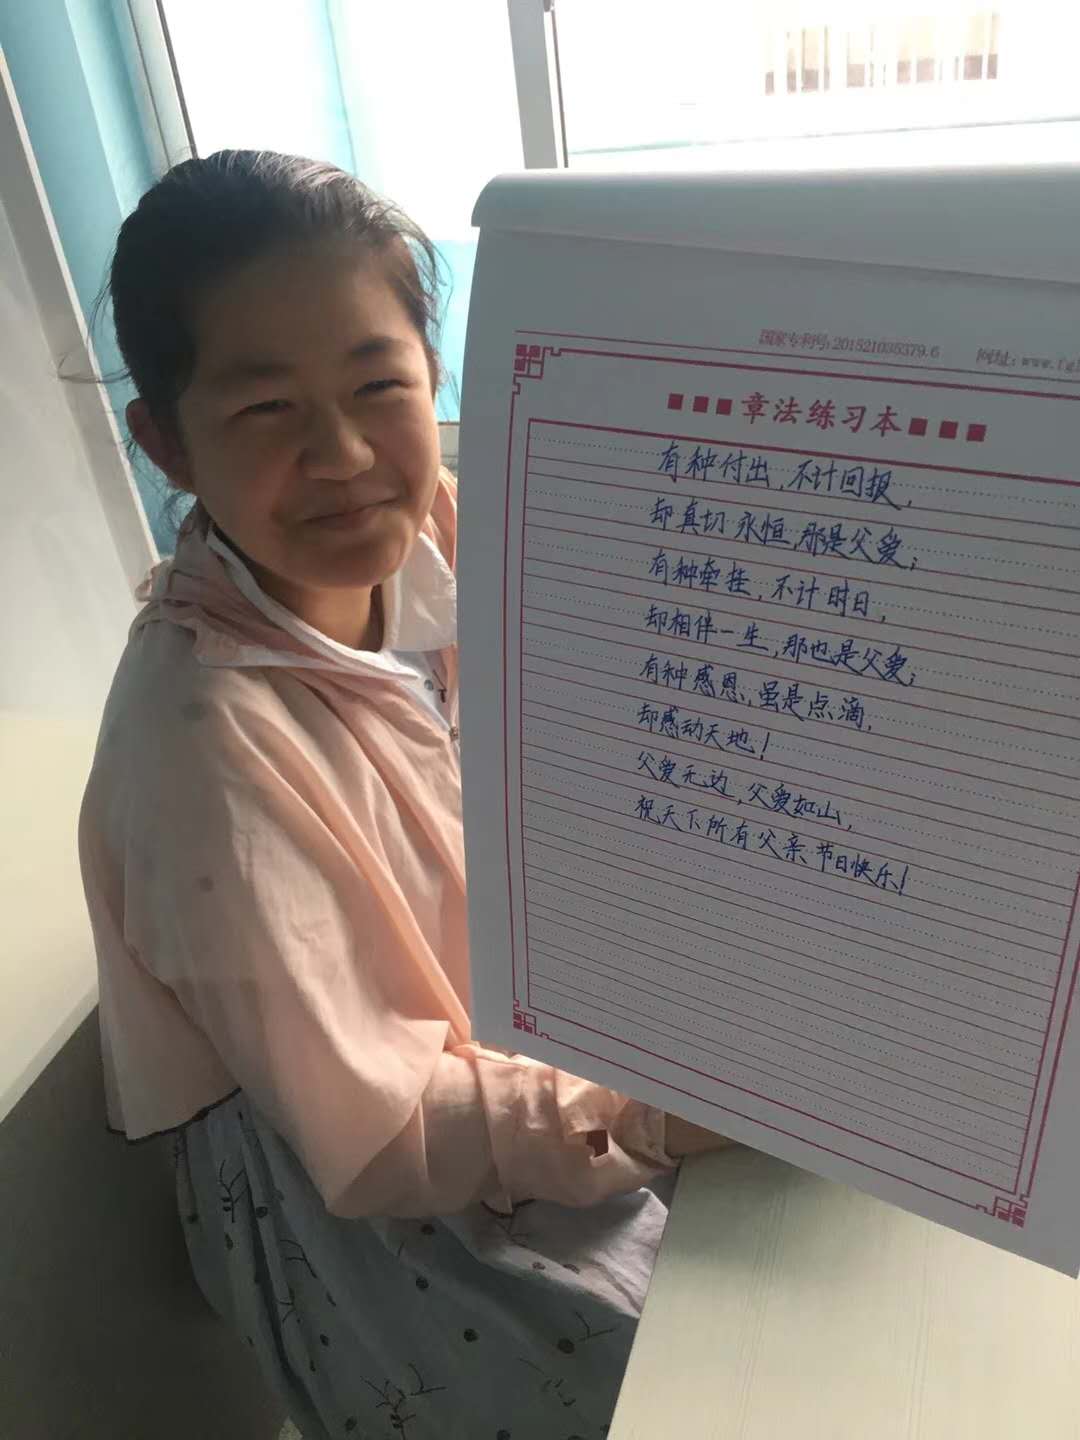 国家专利号:201521035379.6 网址:www.fg
■■■章法练习本■■■
有种付出,不计回报,
却真切永恒,那是父爱;
有种牵挂,不计时日,
却相伴一生,那也是父爱;
有种感恩,虽是点滴,
却感动天地!
父爱无边,父爱如山,
祝天下所有父亲节日快乐!